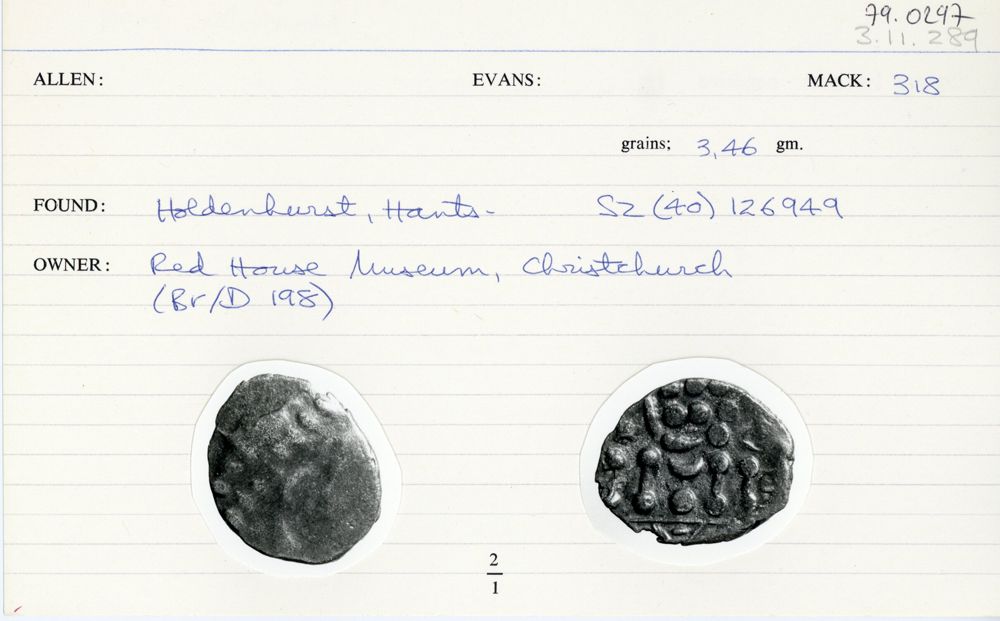 79.0297
3.11.289
ALLEN: EVANS: MACK: 318
grains; 3,46 gm.
FOUND: Holdenhurst, Hants- SZ (40) 126949
OWNER: Red House Museum, Christchurch
(Br/D 198)
2
1